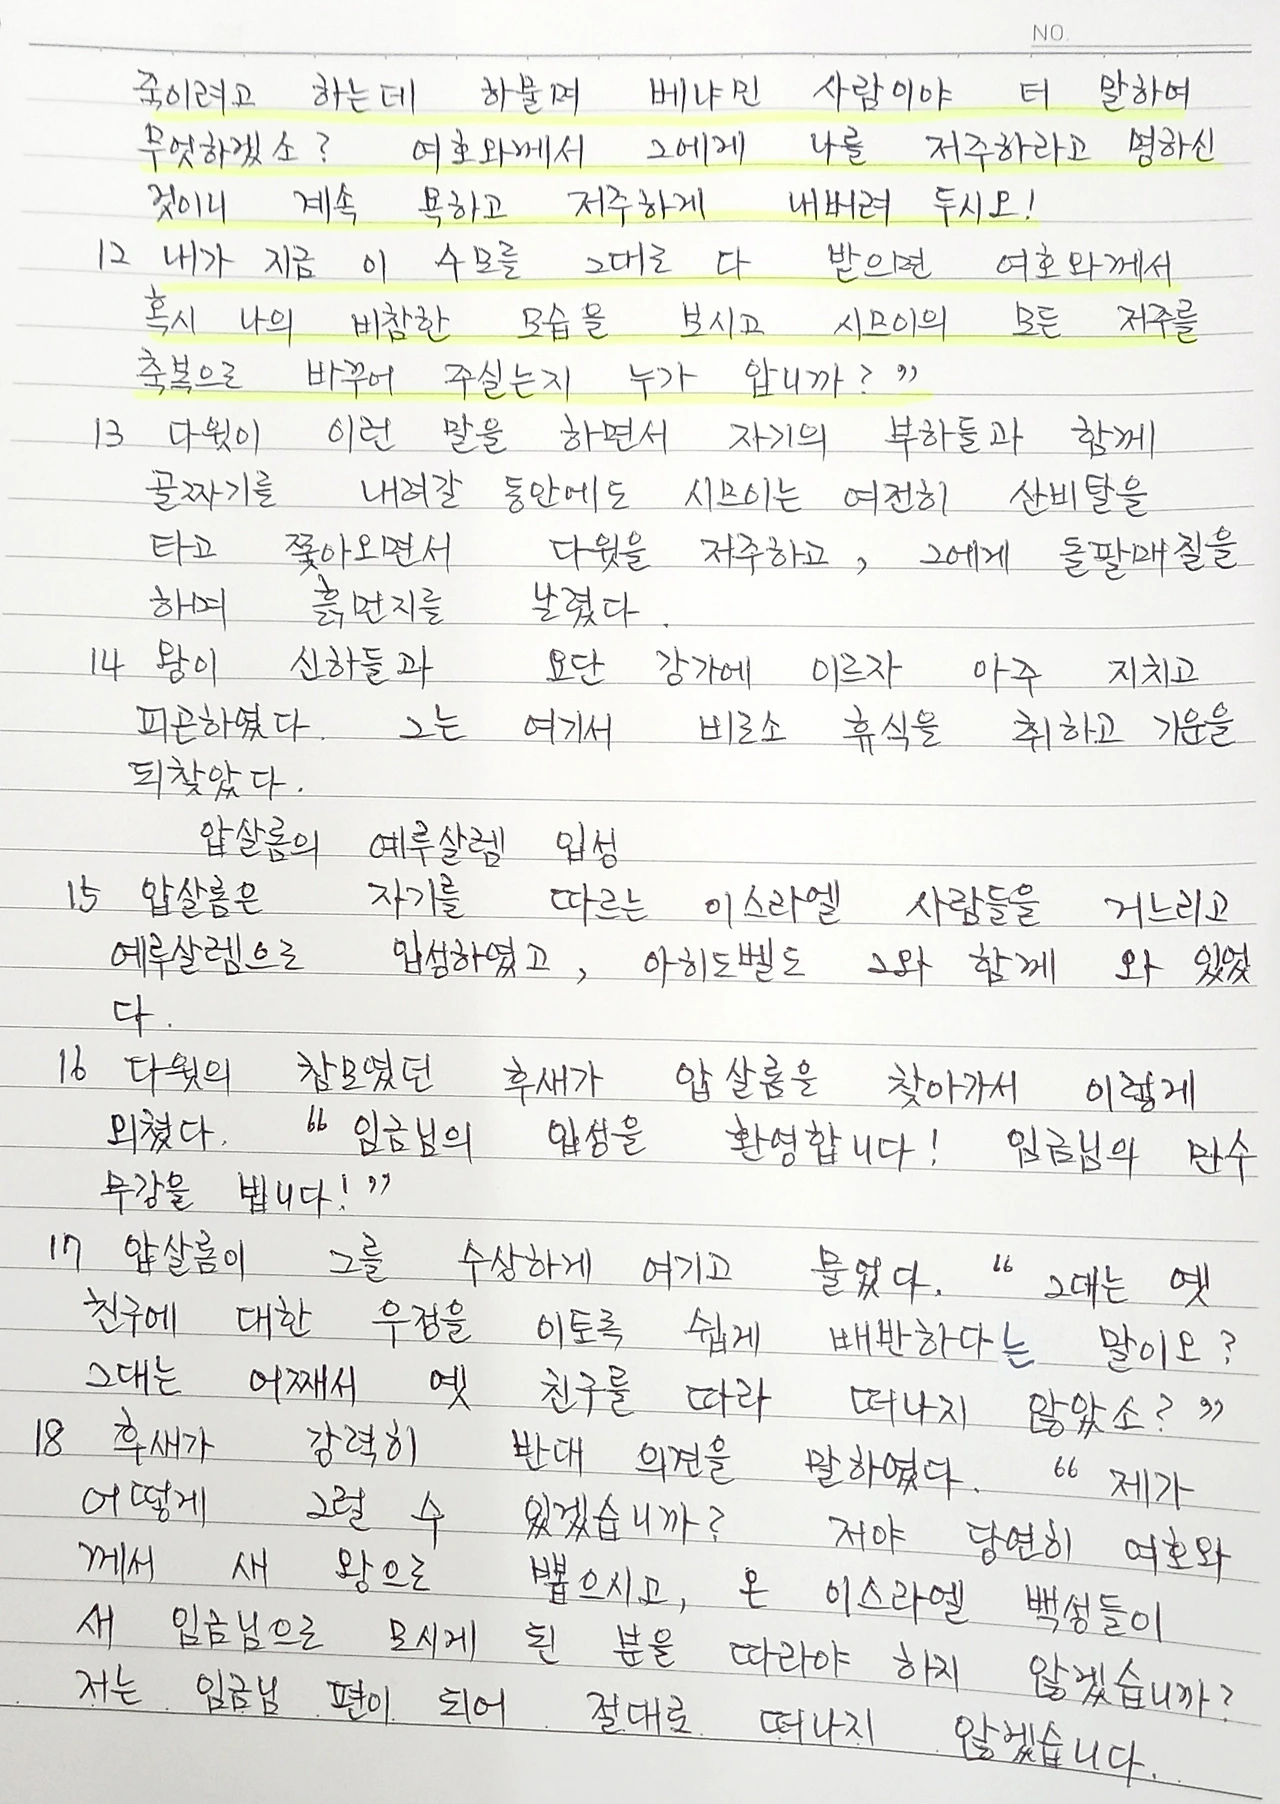 NO.
죽이려고 하는데 하물며 베냐민 사람이야 더 말하여
무엇하겠소? 여호와께서 그에게 나를 저주하라고 명하신
것이니 계속 욕하고 저주하게 내버려 두시오!
12 내가 지금 이 수모를 그대로 다 받으면 여호와께서
혹시 나의 비참한 모습을 보시고 시므이의 모든 저주를
축복으로 바꾸어 주실는지 누가 압니까?”
13 다윗이 이런 말을 하면서 자기의 부하들과 함께
골짜기를 내려갈 동안에도 시므이는 여전히 산비탈을
타고 쫓아오면서 다윗을 저주하고, 그에게 돌팔매질을
하며 흙먼지를 날렸다.
14 왕이 신하들과 요단 강가에 이르자 아주 지치고
피곤하였다. 그는 여기서 비로소 휴식을 취하고 기운을
되찾았다.
압살롬의 예루살렘 입성
15 압살롬은 자기를 따르는 이스라엘 사람들을 거느리고
예루살렘으로 입성하였고, 아히도벨도 그와 함께 와 있었
다.
16 다윗의 참모였던 후새가 압살롬을 찾아가서 이렇게
외쳤다. “임금님의 입성을 환영합니다! 임금님의 만수
무강을 빕니다!”
17 압살롬이 그를 수상하게 여기고 물었다. “그대는 옛
친구에 대한 우정을 이토록 쉽게 배반하다는 말이오?
그대는 어째서 옛 친구를 따라 떠나지 않았소?”
18 후새가 강력히 반대 의견을 말하였다. “제가
어떻게 그럴 수 있겠습니까? 저야 당연히 여호와
께서 새 왕으로 뽑으시고, 온 이스라엘 백성들이
새 임금님으로 모시게 된 분을 따라야 하지 않겠습니까?
저는 임금님 편이 되어 절대로 떠나지 않겠습니다.